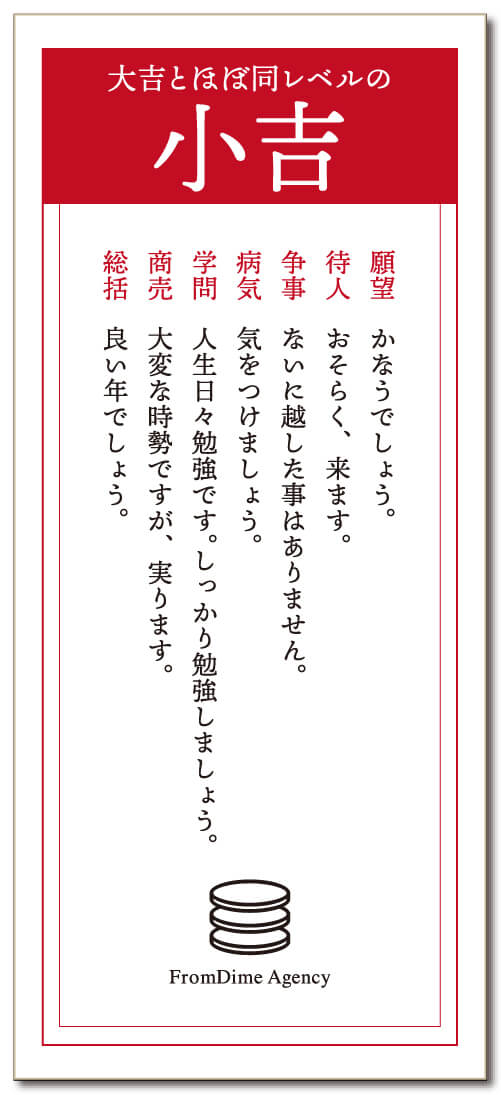 大吉とほぼ同レベルの
小吉
願望 かなうでしょう。
待人 おそらく、来ます。
争事 ないに越した事はありません。
病気 気をつけましょう。
学問 人生日々勉強です。しっかり勉強しましょう。
商売 大変な時勢ですが、実ります。
総括 良い年でしょう。
FromDime Agency